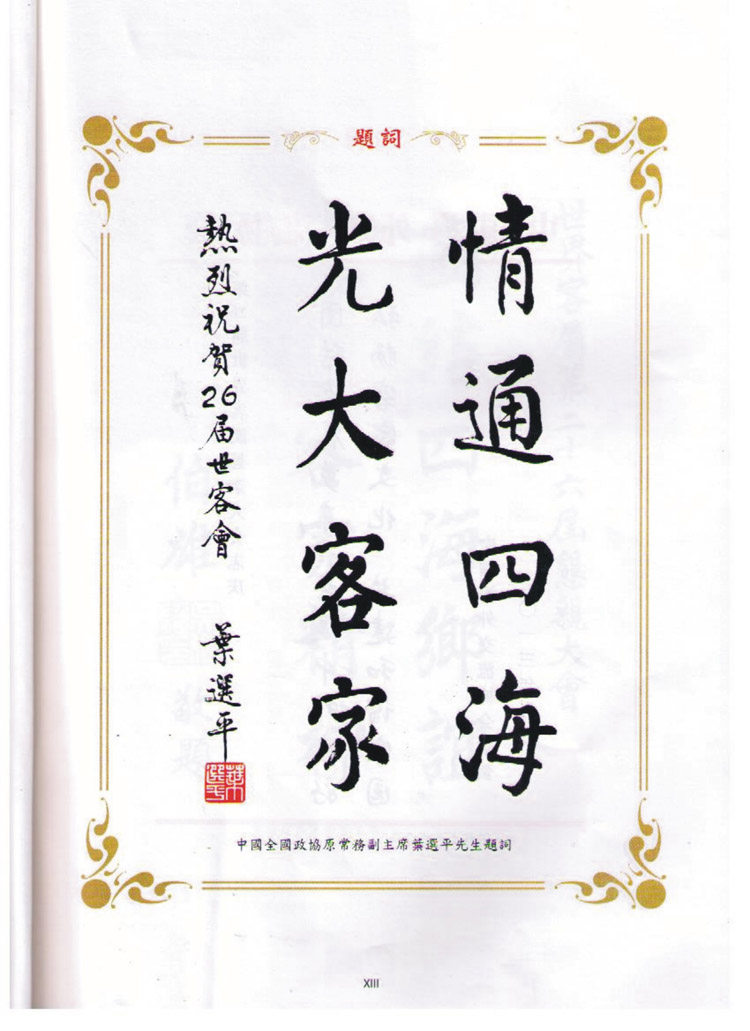 題詞
情通四海
光大客家
熱烈祝賀26屆世客會
葉選平
葉選平
中國全國政協原常務副主席葉選平先生題詞
XIII